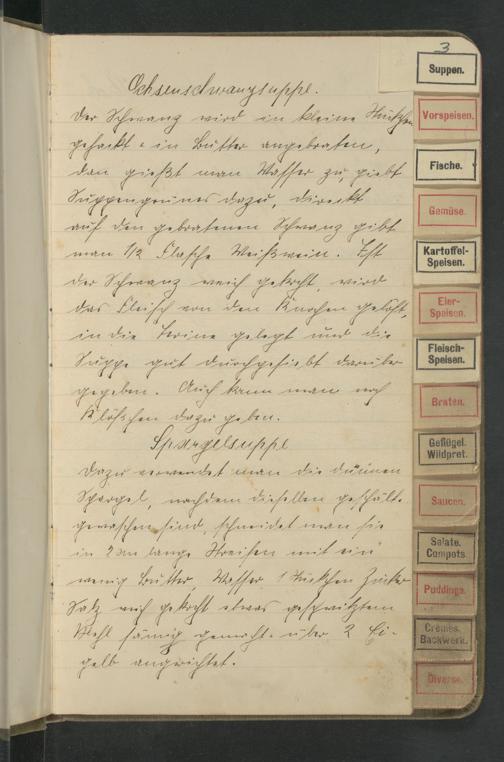 3
Ochsenschwanzsuppe.
Der Schwanz wird in kleine Stückchen
gehackt u. in Butter angebraten,
dan gießt man Wasser zu, giebt
Suppengrünes dazu, direckt
auf den gebratenen Schwanz gibt
man 1/2 Flasche Weißwein. Ist
der Schwanz weich gekocht, wird
das Fleisch von den Knochen gelößt,
in die Terine gelegt und die
Suppe gut durchgesiebt darüber
gegeben. Auch kann man noch
Klößchen dazu geben.
Spargelsuppe
Dazu verwendet man die dünnen
Spargel, nachdem dieselben geschält u.
gewaschen sind, schneidet man sie
in 2 cm lange Streifen mit ein
wenig Butter, Wasser 1 Stückchen Zucker
Salz weich gekocht etwas geschwitztem
Mehl sämig gemacht u. über 2 Ei-
gelb angerichtet.
Suppen.
Vorspeisen.
Fische.
Gemüse.
Kartoffel-
Speisen.
Eier-
Speisen.
Fleisch-
Speisen.
Braten.
Geflügel.
Wildpret.
Saucen.
Salate.
Compots.
Puddings.
Crêmes.
Backwerk.
Diverse.